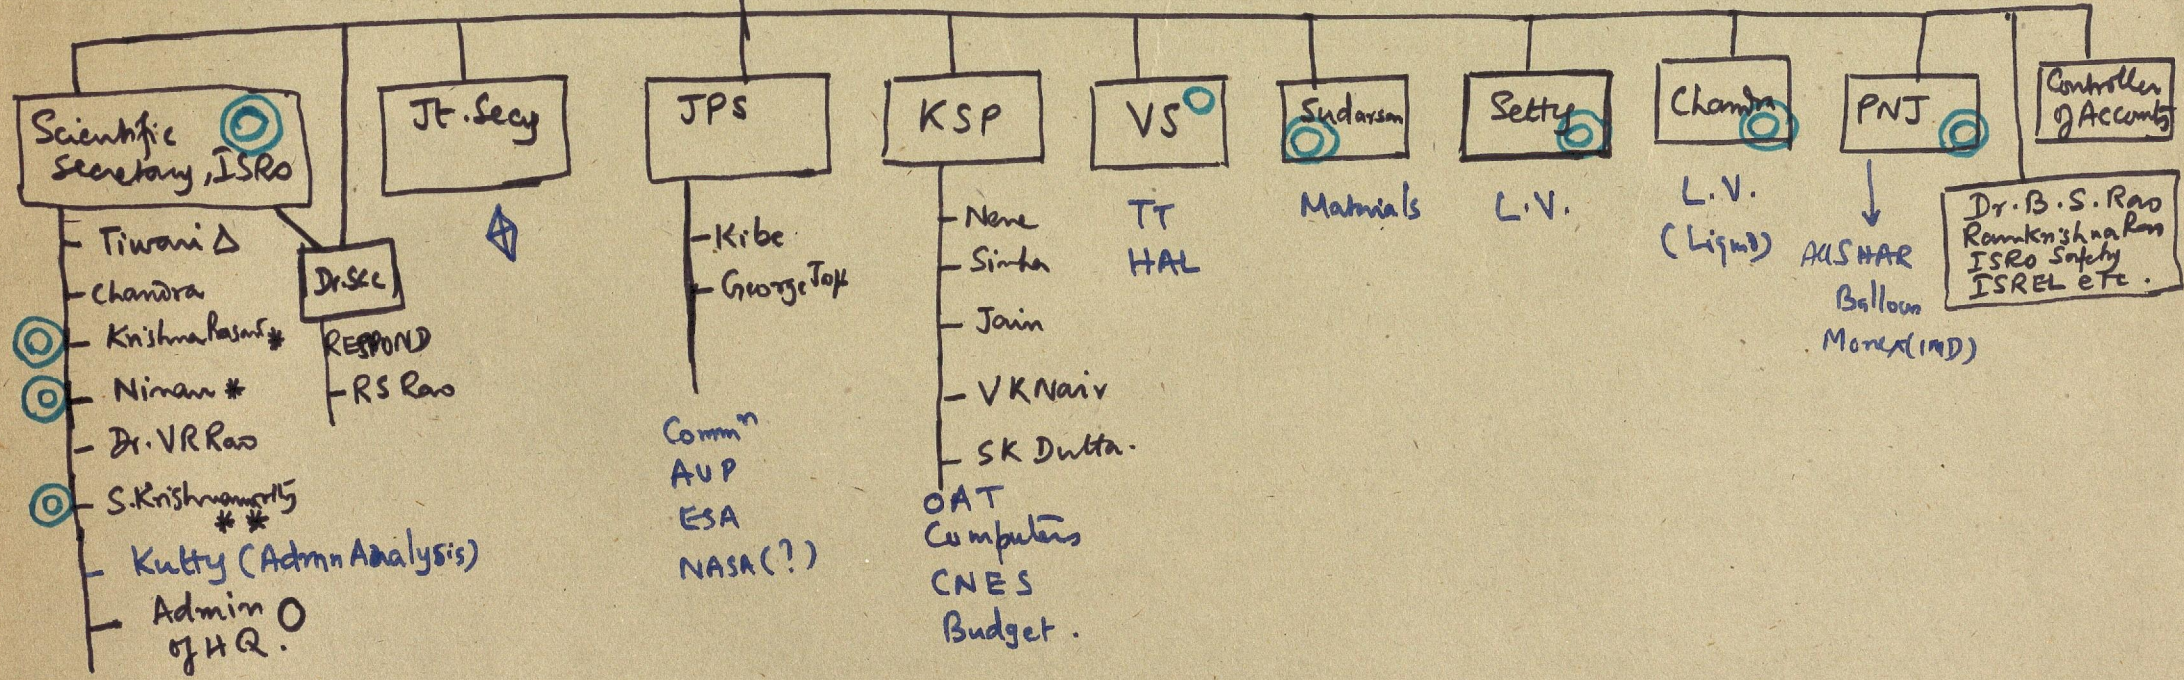 Scientific
Secretary, ISRO
Tiwari
Chandra
Krishna
Ninan *
Dr. VR Rao
S. Krishnamurthy
* *
Kutty (Admn Analysis)
Admin
of HQ.
RESPOND
RS Rao
Jt. Secy
JPS
Kibe
George
Commn
AVP
ESA
NASA (?)
KSP
Nene
Sinha
Jain
VK Nair
SK Dutta.
OAT
Computers
CNES
Budget.
VS
TT
HAL
Sudarsan
Materials
Setty
L.V.
Chandra
L.V.
(Liquid)
PNJ
SHAR
Balloon
Monex (IMD)
Controller
of Accounts
Dr. B. S. Rao
Ramkrishna Rao
ISRO Safety
ISREL etc.